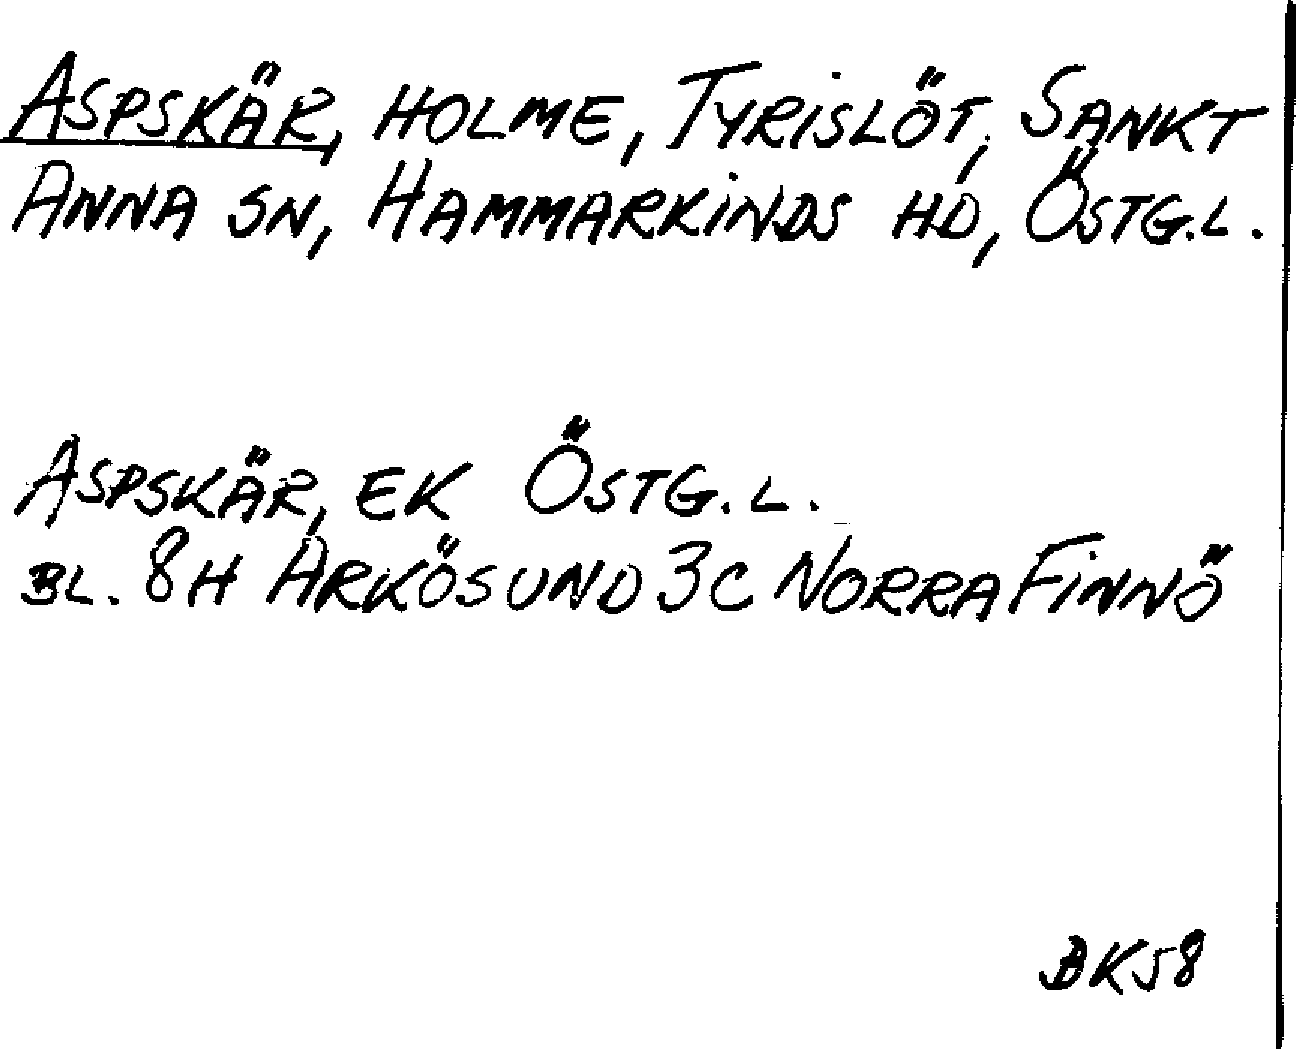 ASPSKÄR, HOLME, TYRISLÖT, SANKT
ANNA SN, HAMMARKINDS HD, ÖSTG.L.
ASPSKÄR, EK ÖSTG.L.
BL. 8H ARKÖSUND 3C NORRA FINNÖ
BK58